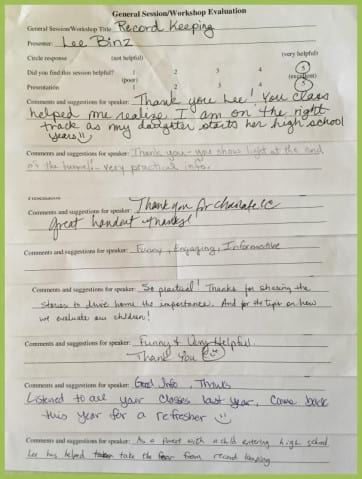 General Session/Workshop Evaluation
General Session/Workshop Title Record Keeping
Presenter: Lee Binz
Circle response (not helpful) (very helpful)
Did you find this session helpful? 1 2 3 4 5
(poor) (excellent)
Presentation 1 2 3 4 5
Comments and suggestions for speaker: Thank you Lee! You class
helped me realize I am on the right
track as my daughter starts her high school
years!
Comments and suggestions for speaker: Thank you - you show light at the end
of the tunnel! - very practical info.
Comments and suggestions for speaker: Thank you for chocolate
Great handout - thanks!
Comments and suggestions for speaker: Funny, Engaging, Informative
Comments and suggestions for speaker: So practical! Thanks for sharing the
stories to drive home the importance. And for the tips on how
we evaluate our children!
Comments and suggestions for speaker: Funny & Very Helpful.
Thank You
Comments and suggestions for speaker: Good Info, Thanks
Listened to all your classes last year, Came back
this year for a refresher
Comments and suggestions for speaker: As a parent with a child entering high school
Lee has helped take the fear from record keeping